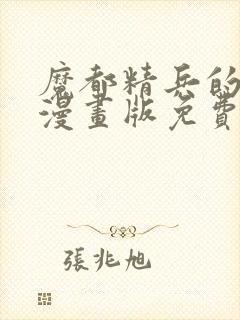 魔都精兵的
漫畫版免費
張兆旭